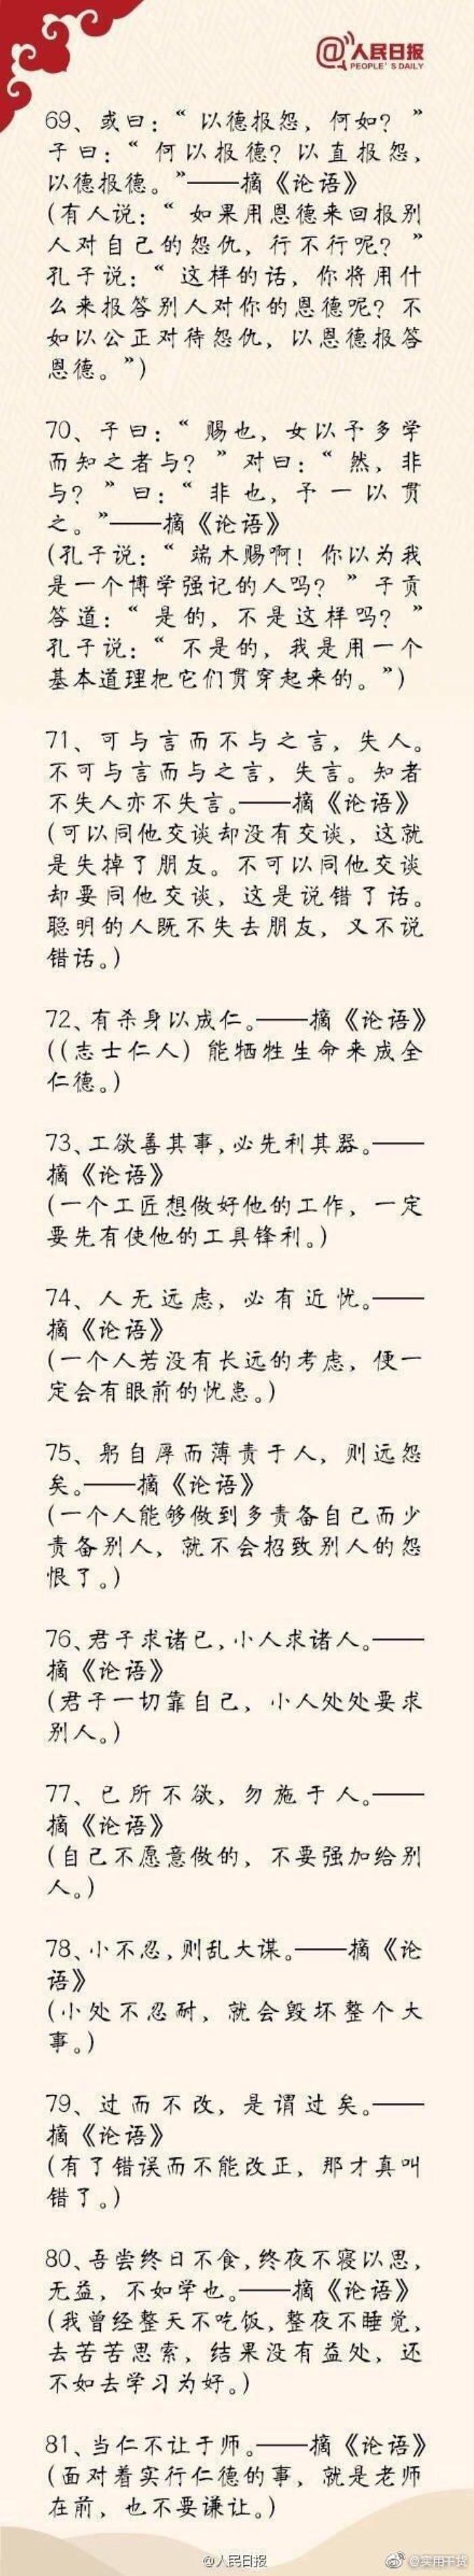 @人民日报
PEOPLE'S DAILY
69、或曰：“以德报怨，何如？”
子曰：“何以报德？以直报怨，
以德报德。”——摘《论语》
(有人说：“如果用恩德来回报别
人对自己的怨仇，行不行呢？”
孔子说：“这样的话，你将用什
么来报答别人对你的恩德呢？不
如以公正对待怨仇，以恩德报答
恩德。”)
70、子曰：“赐也，女以予多学
而知之者与？”对曰：“然，非
与？”曰：“非也，予一以贯
之。”——摘《论语》
(孔子说：“端木赐啊！你以为我
是一个博学强记的人吗？”子贡
答道：“是的，不是这样吗？”
孔子说：“不是的，我是用一个
基本道理把它们贯穿起来的。”)
71、可与言而不与之言，失人。
不可与言而与之言，失言。知者
不失人亦不失言。——摘《论语》
(可以同他交谈却没有交谈，这就
是失掉了朋友。不可以同他交谈
却要同他交谈，这是说错了话。
聪明的人既不失去朋友，又不说
错话。)
72、有杀身以成仁。——摘《论语》
((志士仁人)能牺牲生命来成全
仁德。)
73、工欲善其事,必先利其器。——
摘《论语》
(一个工匠想做好他的工作，一定
要先有使他的工具锋利。)
74、人无远虑，必有近忧。——
摘《论语》
(一个人若没有长远的考虑，便一
定会有眼前的忧患。)
75、躬自厚而薄责于人，则远怨
矣。——摘《论语》
(一个人能够做到多责备自己而少
责备别人，就不会招致别人的怨
恨了。)
76、君子求诸己,小人求诸人。——
摘《论语》
(君子一切靠自己，小人处处要求
别人。)
77、己所不欲，勿施于人。——
摘《论语》
(自己不愿意做的，不要强加给别
人。)
78、小不忍,则乱大谋。——摘《论
语》
(小处不忍耐，就会毁坏整个大
事。)
79、过而不改，是谓过矣。——
摘《论语》
(有了错误而不能改正，那才真叫
错了。)
80、吾尝终日不食,终夜不寝以思，
无益，不如学也。——摘《论语》
(我曾经整天不吃饭,整夜不睡觉，
去苦苦思索，结果没有益处，还
不如去学习为好。)
81、当仁不让于师。——摘《论语》
(面对着实行仁德的事，就是老师
在前，也不要谦让。)
@人民日报